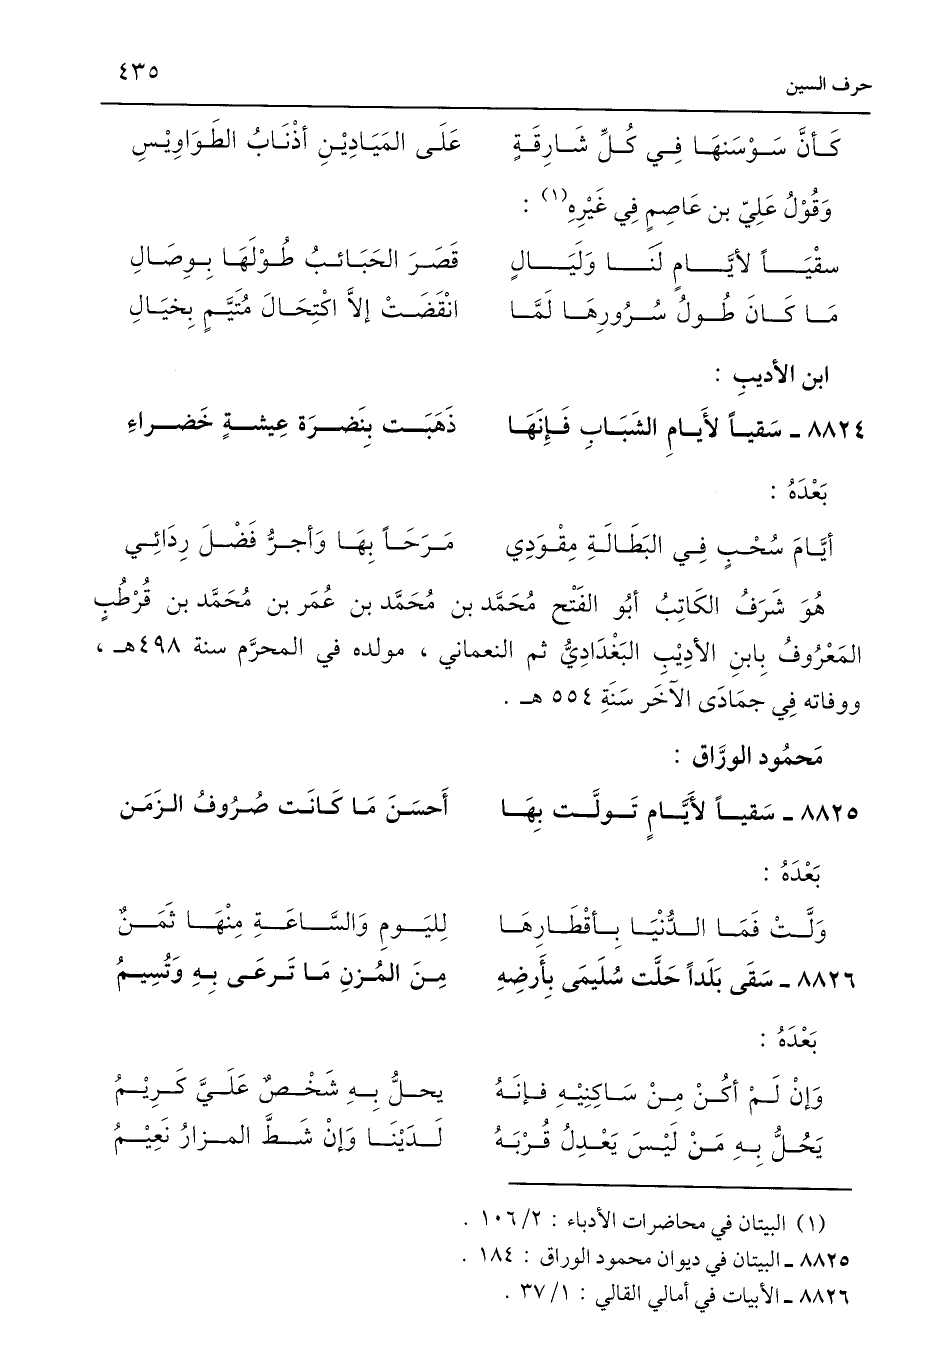 حرف السين ٤٣٥
كَأنَّ سَوْسَنهَا فِي كُلِّ شَارِقَةٍ عَلَى المَيَادِيْنِ أذْنَابُ الطَوَاوِيْسِ
وَقَوْلُ عَلِيّ بن عَاصِمٍ فِي غَيْرِهِ(١) :
سقْيَاً لأيَّامٍ لَنَا وَلَيَالٍ قَصَرَ الحَبَائبُ طُوْلَهَا بِوِصَالِ
مَا كَانَ طُولُ سُرُورِهَا لَمَّا انْقَضَتْ إلاَّ اكْتِحَالَ مُتَيَّمٍ بِخيَالِ
ابن الأديبِ :
٨٨٢٤ ـ سَقياً لأَيامِ الشبَابِ فَإِنَهَا ذَهَبَت بِنَضرَة عِيشةٍ خَضراءِ
بَعْدَهُ :
أيَّامَ سُحْبٍ فِي البَطَالَةِ مِقْوَدِي مَرَحَاً بِهَا وَأجرُّ فَضْلَ رِدَائِي
هُوَ شَرَفُ الكَاتِبُ أبُو الفَتْحِ مُحَمَّد بن مُحَمَّد بن عُمَر بن مُحَمَّد بن قُرْطُبٍ
المَعْرُوفُ بِابنِ الأدِيْبِ البَغْدَادِيُّ ثم النعماني ، مولده في المحرَّمِ سنة ٤٩٨هـ ،
ووفاته فِي جمَادَى الآخَر سَنَةِ ٥٥٤ هـ .
مَحمُود الورَّاق :
٨٨٢٥ ـ سَقياً لأيَّامٍ تَولَّت بِهَا أَحسَنَ مَا كَانَت صُرُوفُ الزمَن
بَعْدَهُ :
وَلَّتْ فَمَا الدُّنْيَا بِأقْطَارِهَا لِليَومِ وَالسَّاعَةِ مِنْهَا ثَمَنٌ
٨٨٢٦ ـ سَقَى بَلَداً حَلَّت سُلَيمَى بِأَرضِهِ مِنَ المُزنِ مَا تَرعَى بِهِ وَتُسِيمُ
بَعْدَهُ :
وَإنْ لَمْ أكُنْ مِنْ سَاكِنِيْهِ فَإنَهُ يحلُّ بِهِ شَخْصٌ عَلَيَّ كَرِيْمُ
يَحُلُّ بِهِ مَنْ لَيْسَ يَعْدِلُ قُرْبَهُ لَدَيْنَا وَإنْ شَطَّ المزارُ نَعِيْمُ
(١) البيتان في محاضرات الأدباء : ١٠٦/٢ .
٨٨٢٥ ـ البيتان في ديوان محمود الوراق : ١٨٤ .
٨٨٢٦ ـ الأبيات في أمالي القالي : ٣٧/١ .